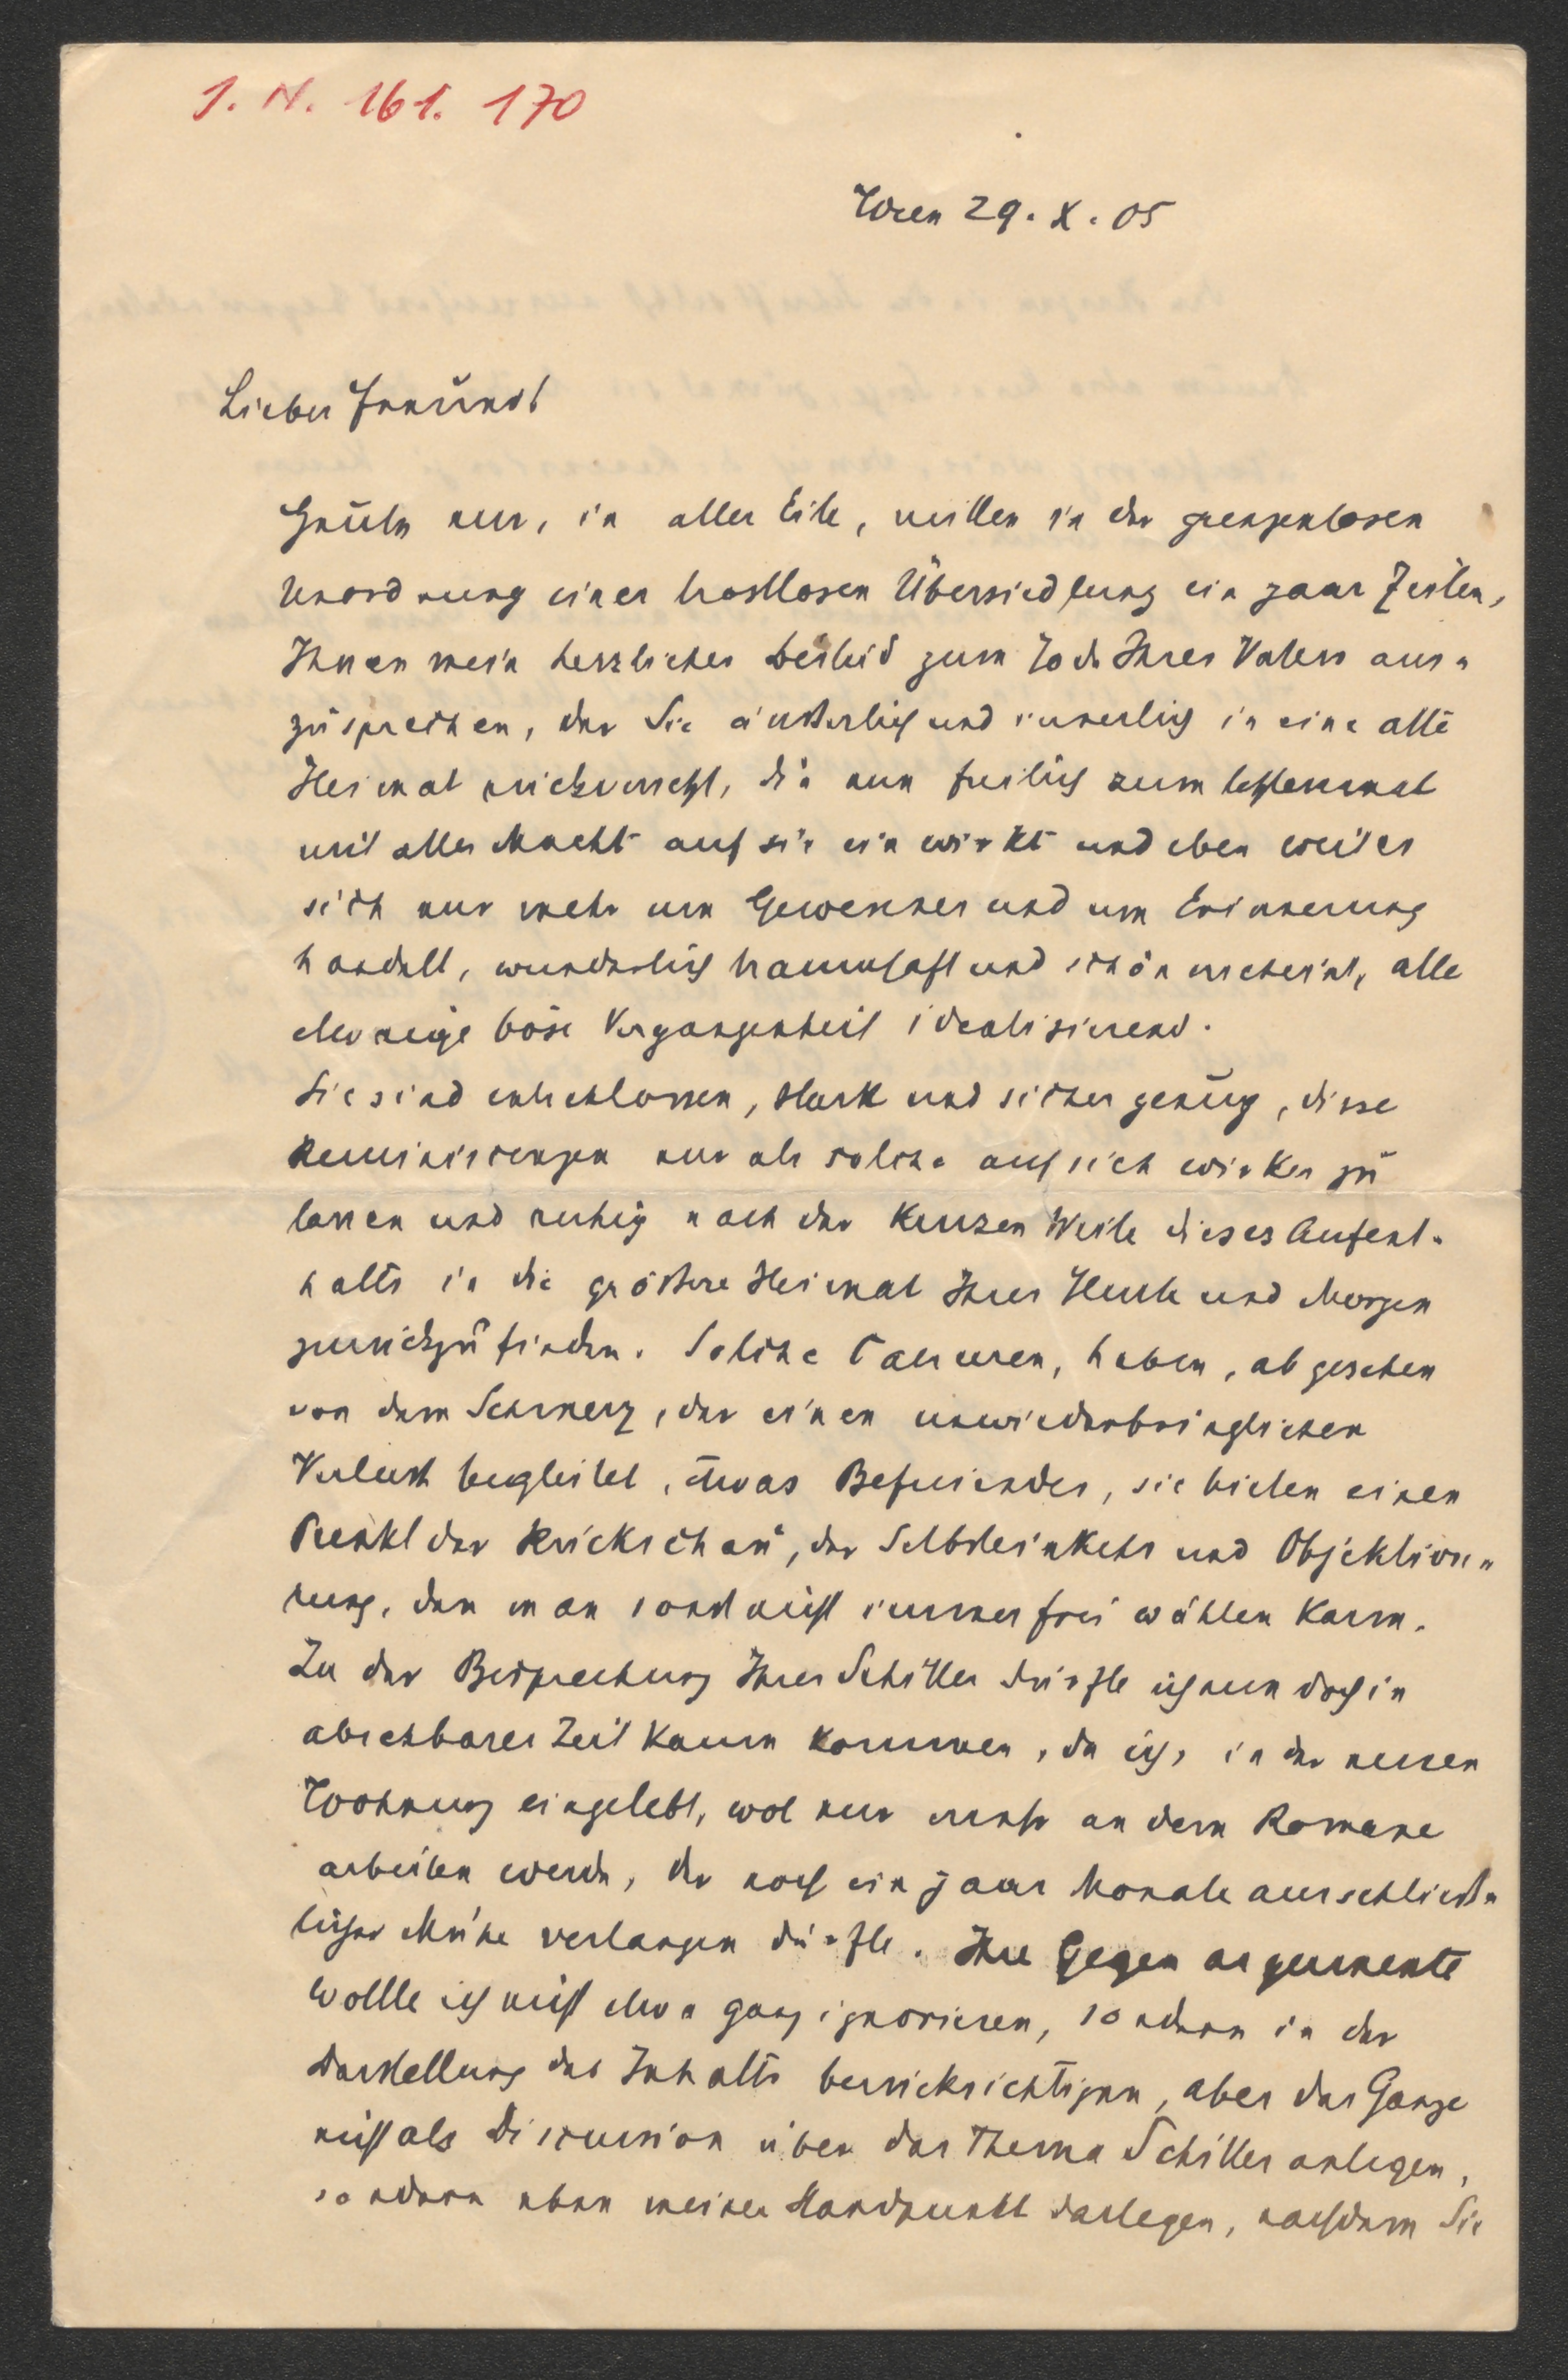 I. N. 161.170
Wien 29. X. 05
Lieber Freund!
Heute nur, in aller Eile, mitten in der grenzenlosen
Unordnung einer trostlosen Übersiedlung ein paar Zeilen,
Ihnen mein herzliches Beileid zum Tode Ihres Vaters aus-
zusprechen, der Sie äußerlich und innerlich in eine alte
Heimat rückversetzt, die nun freilich zum letztenmal
mit aller Macht auf sie einwirkt und eben weil es
sich nur mehr um Gewesenes und um Erinnerung
handelt, wunderlich traumhaft und schön erscheint, alle
etwaige böse Vergangenheit idealisierend.
Sie sind entschlossen, stark und sicher genug, diese
Reminiscenzen nur als solche auf sich wirken zu
lassen und ruhig nach der kurzen Weile dieses Aufent-
halts in die größere Heimat Ihres Heute und Morgen
zurückzufinden. Solche Pausen, haben, abgesehen
von dem Schmerz, der einen unwiederbringlichen
Verlust begleitet, etwas Befreiendes, sie bieten einen
Punkt der Rückschau, der Selbsteinkehr und Objektivie-
rung, den man sonst nicht immer frei wählen kann.
Zu der Besprechung Ihres Schiller dürfte ich nun doch in
absehbarer Zeit kaum kommen, da ich, in der neuen
Wohnung eingelebt, wol nur mehr an dem Romane
arbeiten werde, der noch ein paar Monate ausschließ-
licher Mühe verlangen dürfte. Ihre Gegenargumente
wollte ich nicht etwa ganz ignorieren, sondern in der
Darstellung des Inhalts berücksichtigen, aber das Ganze
nicht als Discussion über das Thema Schiller anlegen,
sondern eben meinen Standpunkt darlegen, nachdem Sie